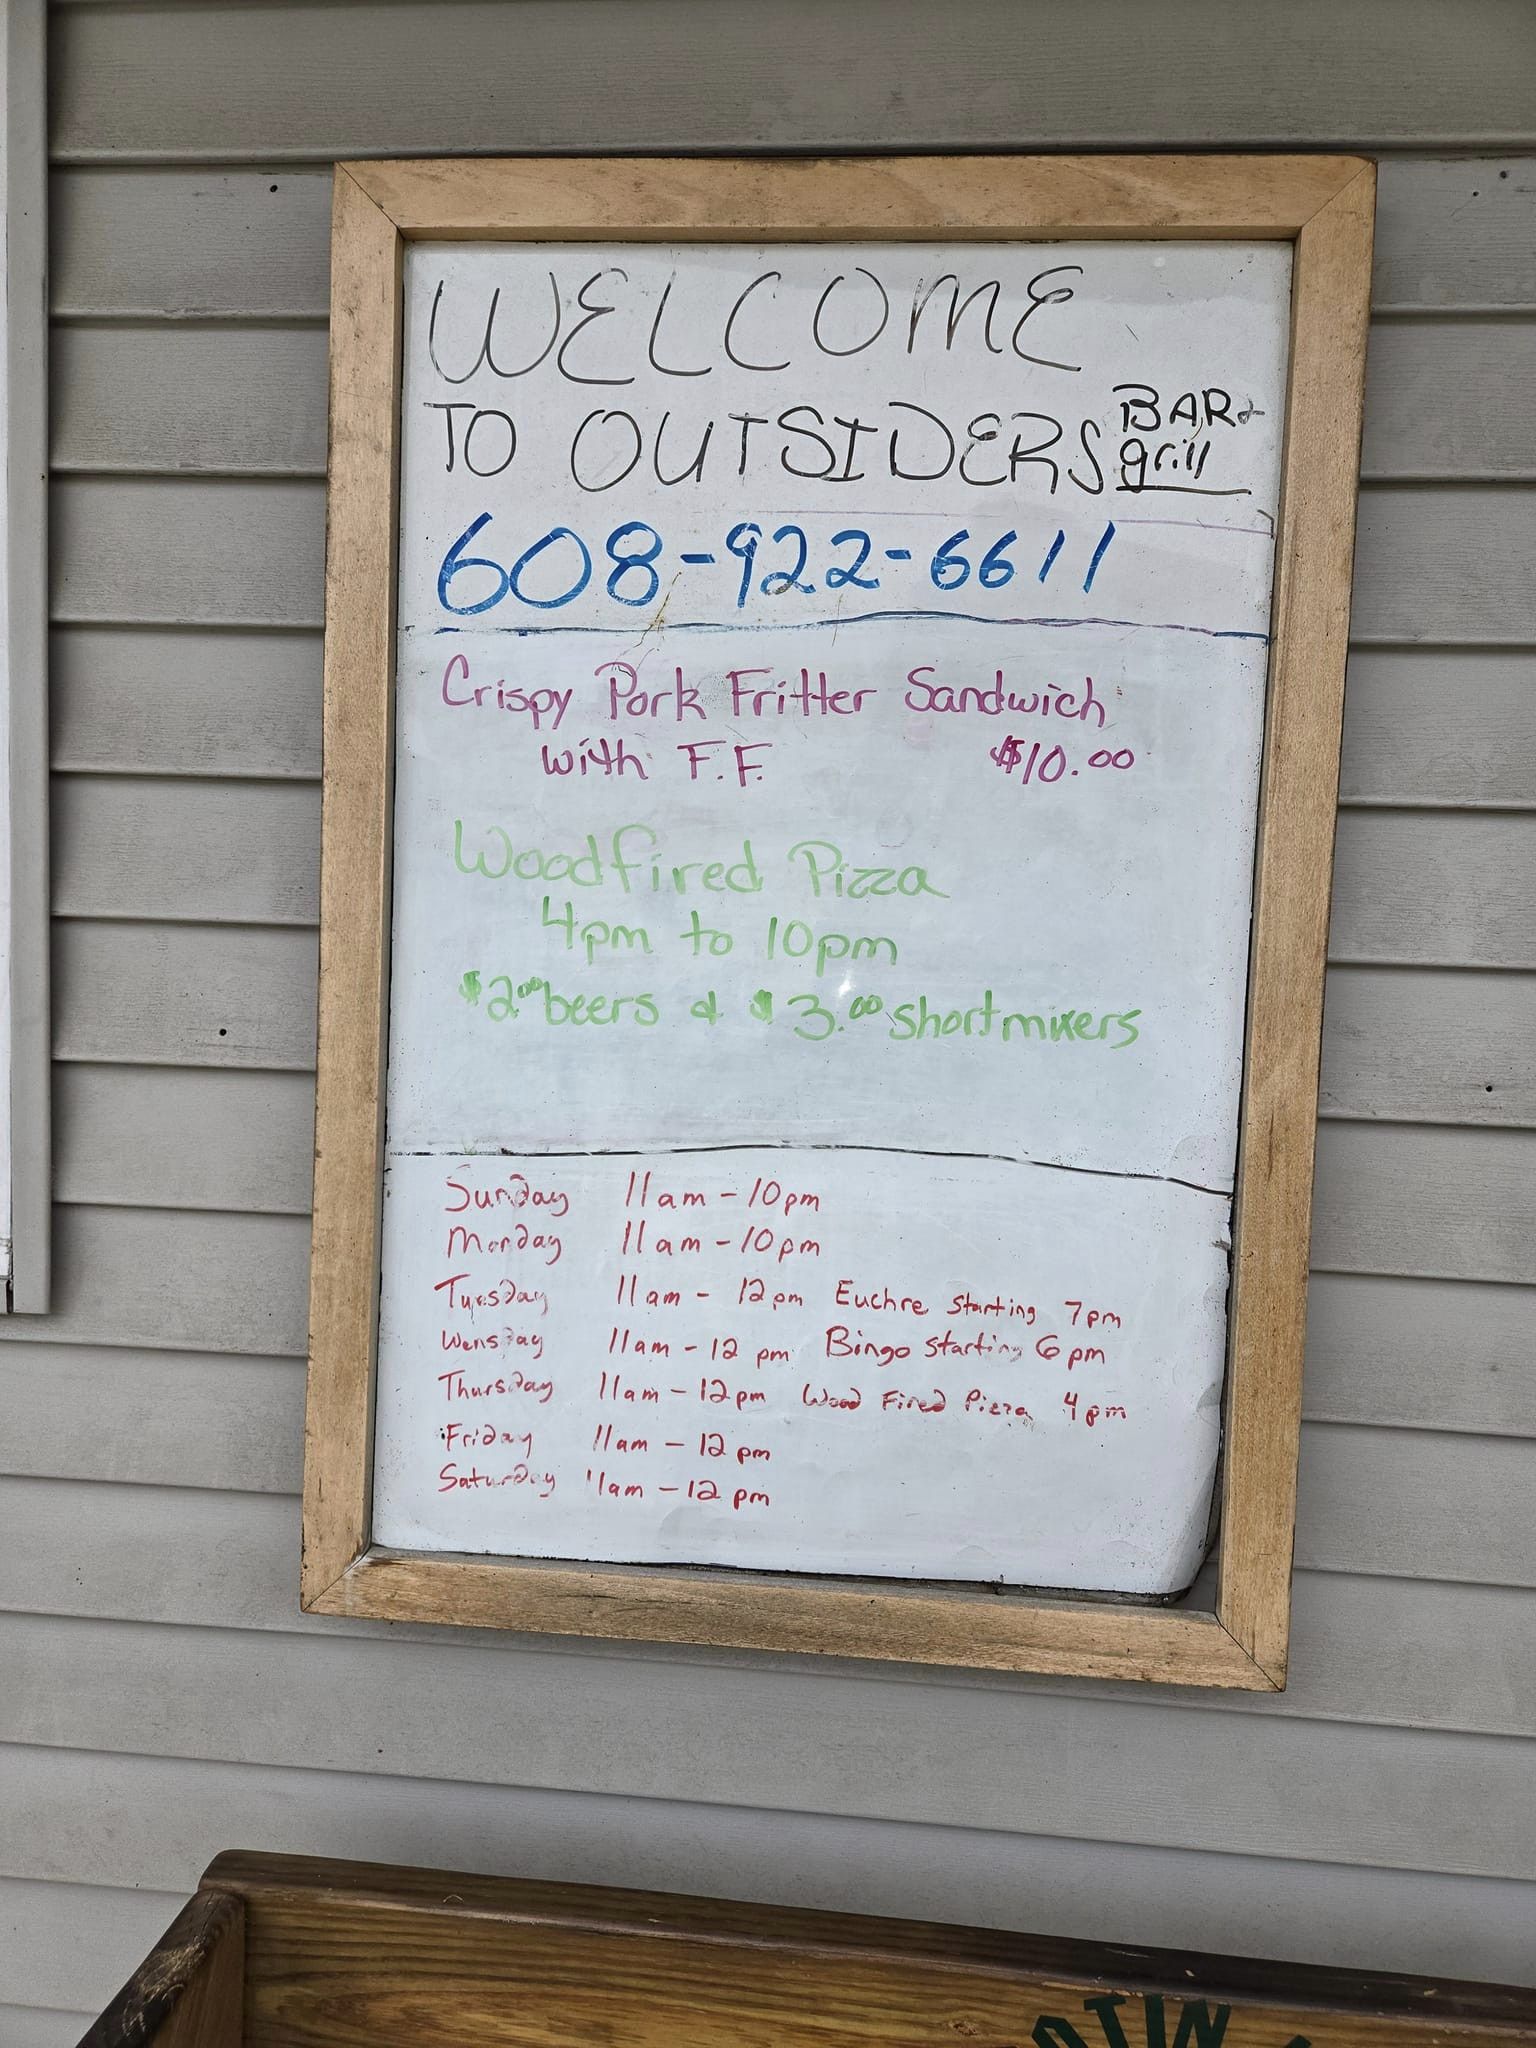 WELCOME
TO OUTSIDERS BAR &
grill
608-922-6611
Crispy Pork Fritter Sandwich
with F.F. $10.00
Woodfired Pizza
4pm to 10pm
$2.00 beers & $3.00 short mixers
Sunday 11am - 10pm
Monday 11am - 10pm
Tuesday 11am - 12pm Euchre starting 7pm
Wensday 11am - 12pm Bingo starting 6pm
Thursday 11am - 12pm Wood Fired Pizza 4pm
Friday 11am - 12pm
Saturday 11am - 12pm